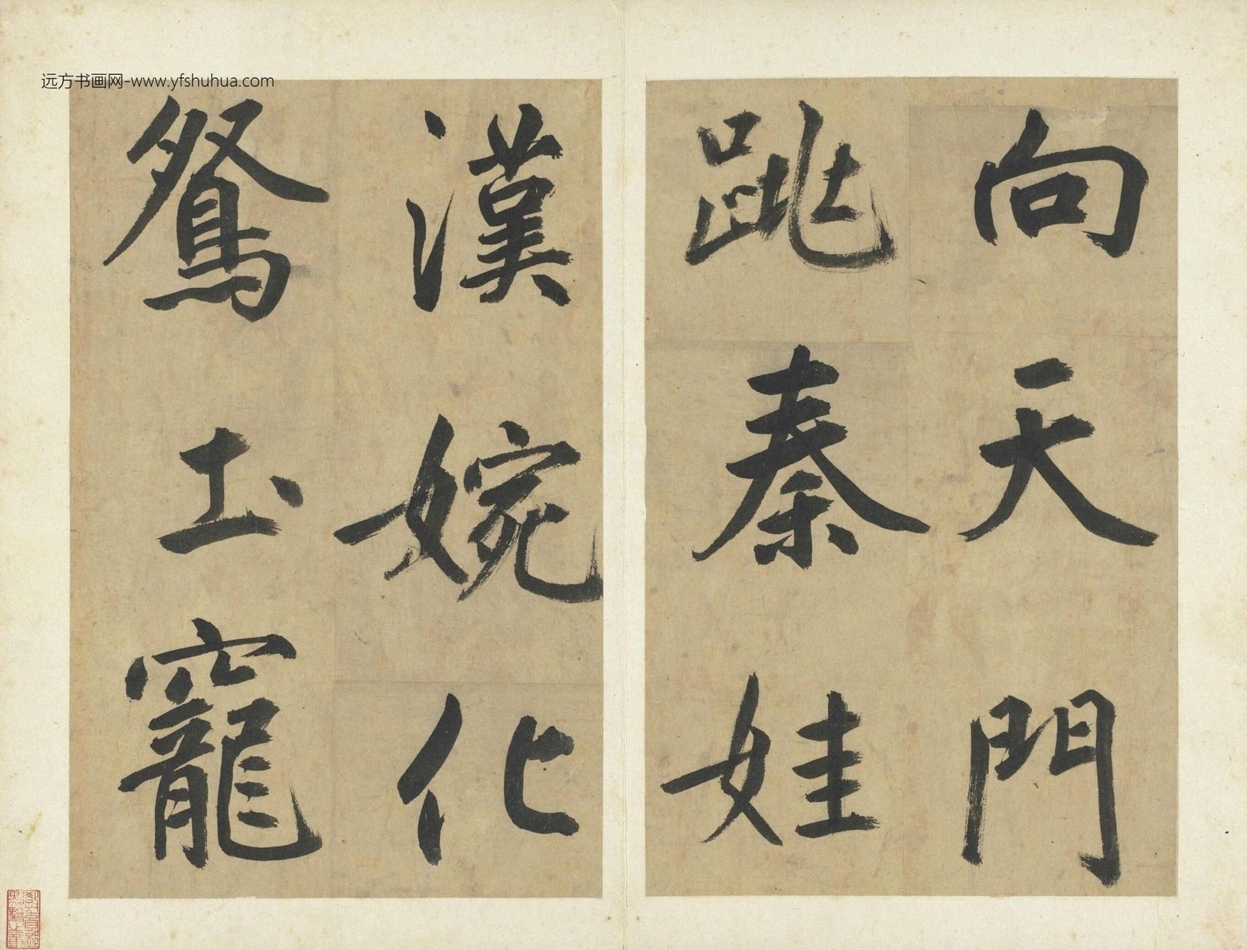 远方书画网-www.yfshuhua.com
向天門
跳秦娃
漢婉化
鴛圡竉